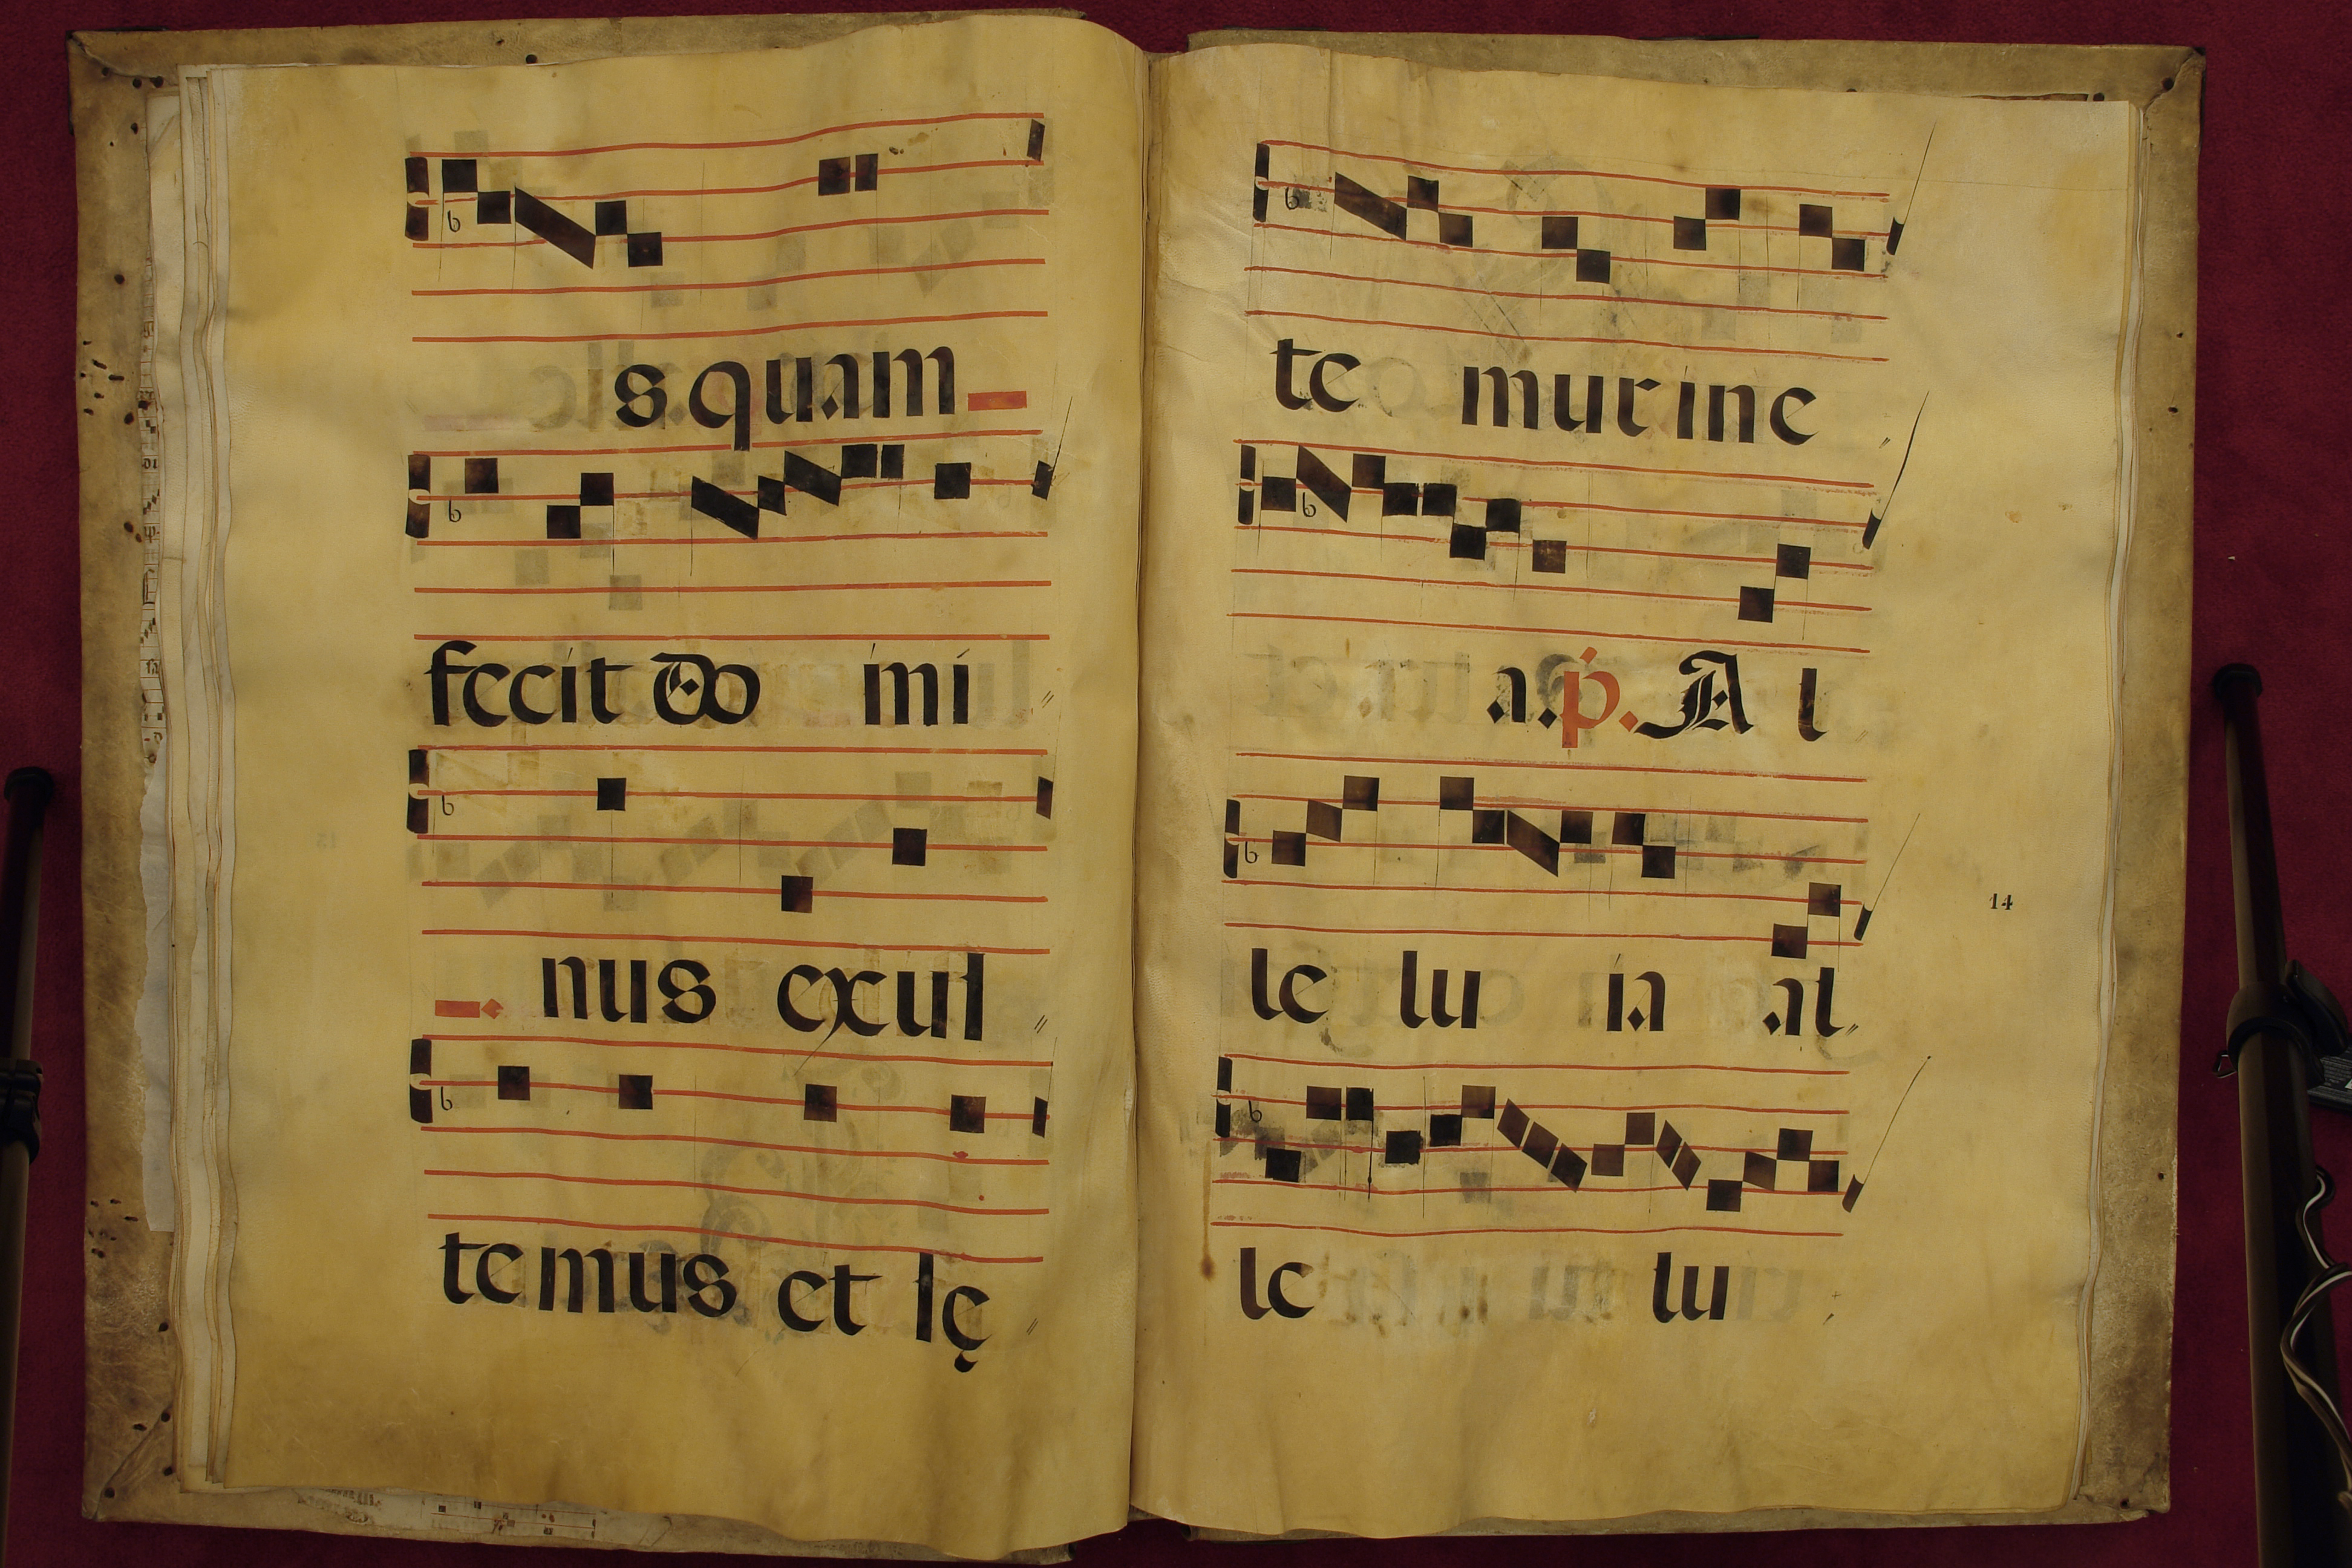 s quam
fecit Do mi
nus exul
temus et lę
te mur in e
a. p. A l
le lu ia al
14
le lu